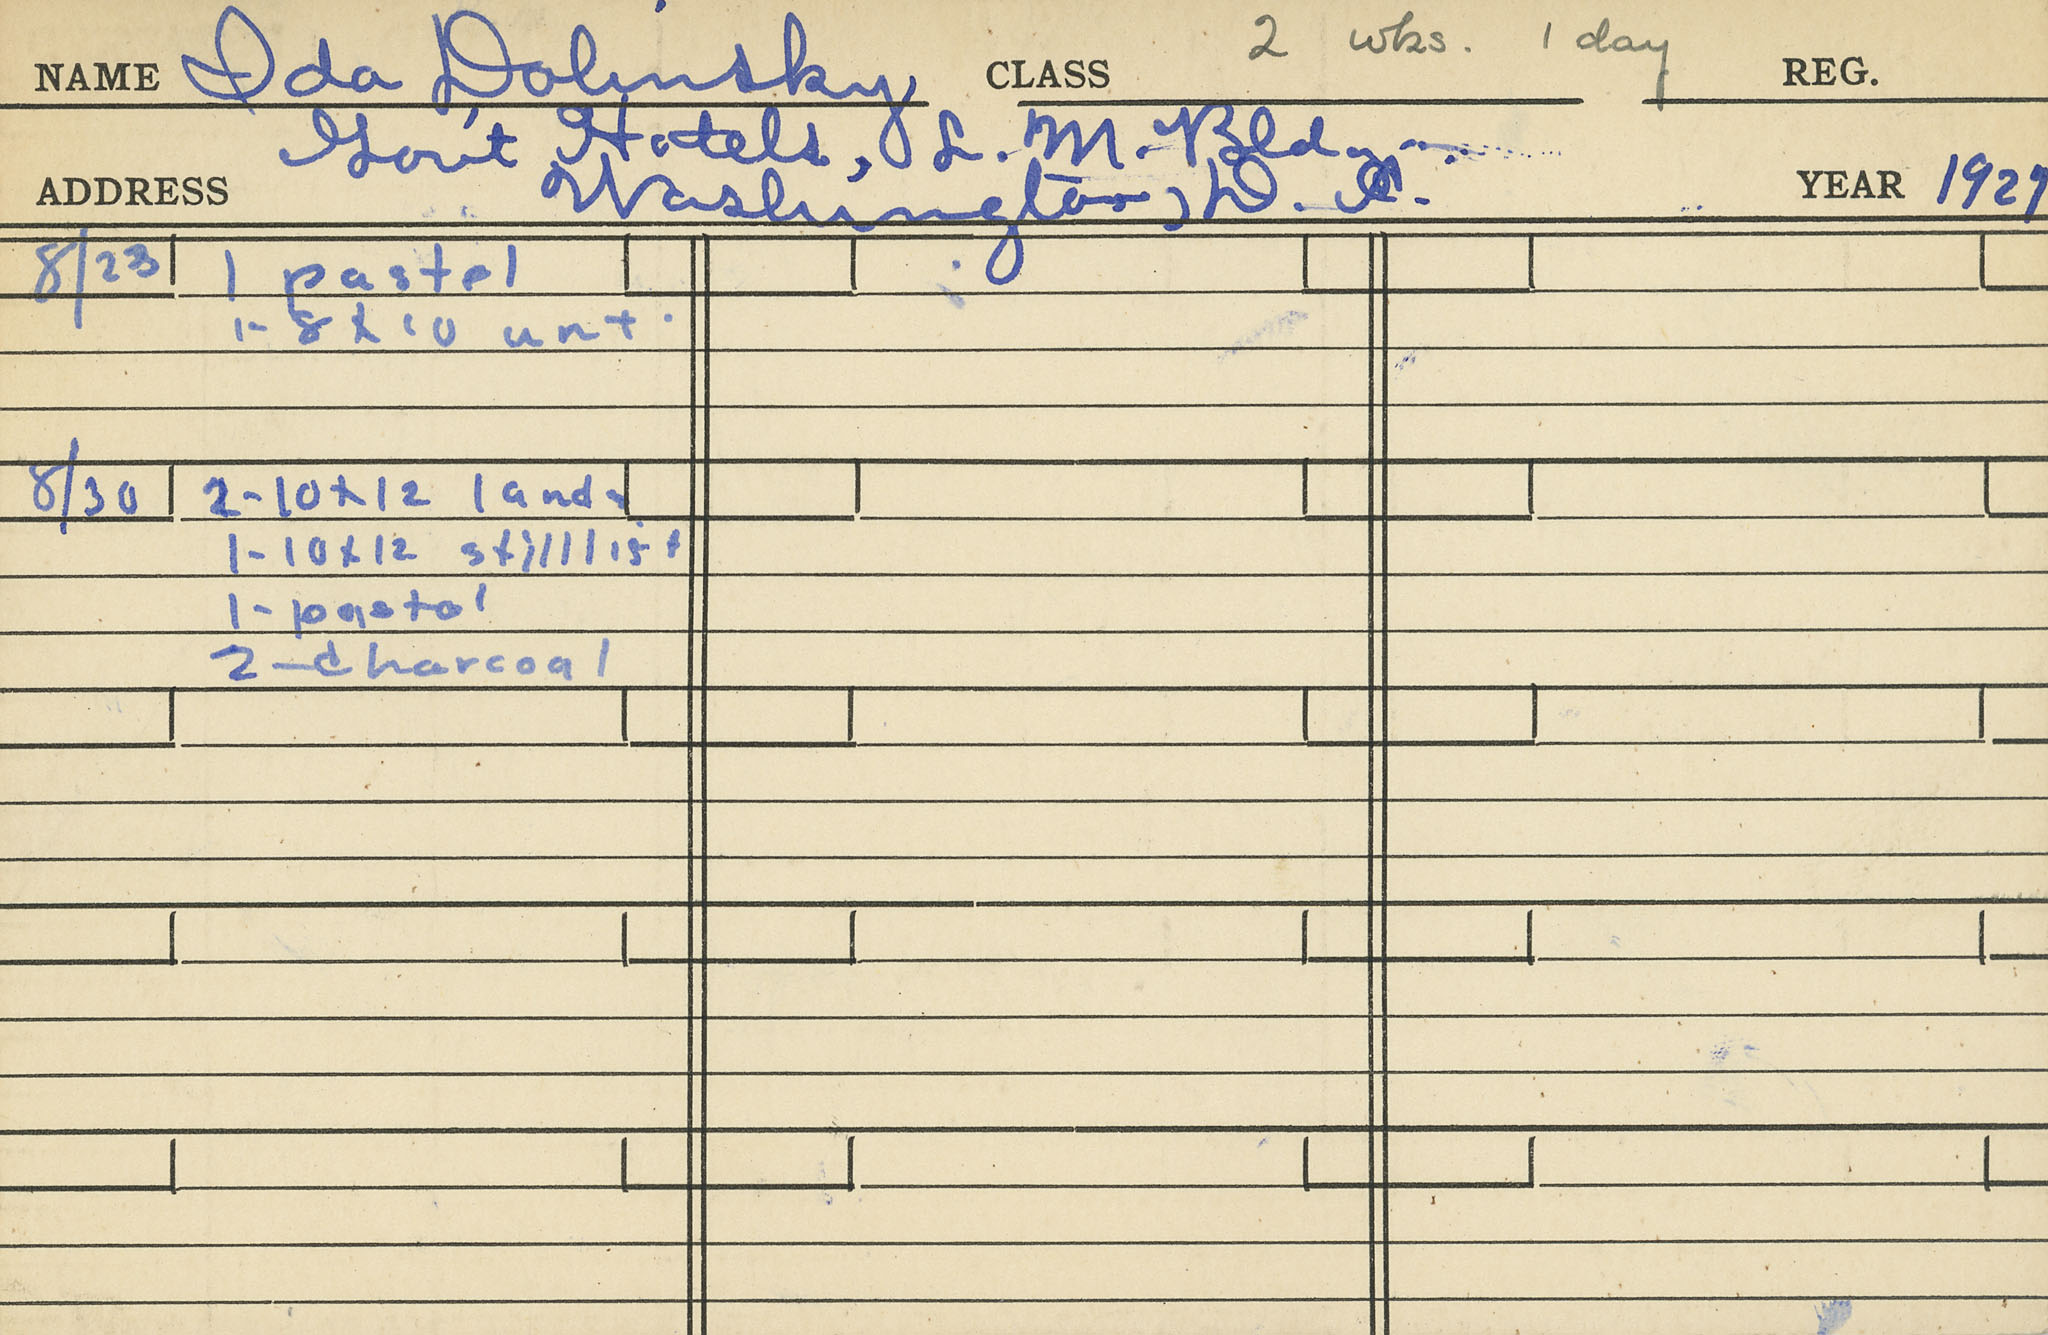 NAME Ida Dolinsky CLASS 2 wks. 1 day REG.
Gov't Hotels, L. M. Bldg.
ADDRESS Washington, D. C. YEAR 1929
8/23 1 pastel
1-8x10 unt.
8/30 2-10x12 land.
1-10x12 still
1-pastel
2-charcoal